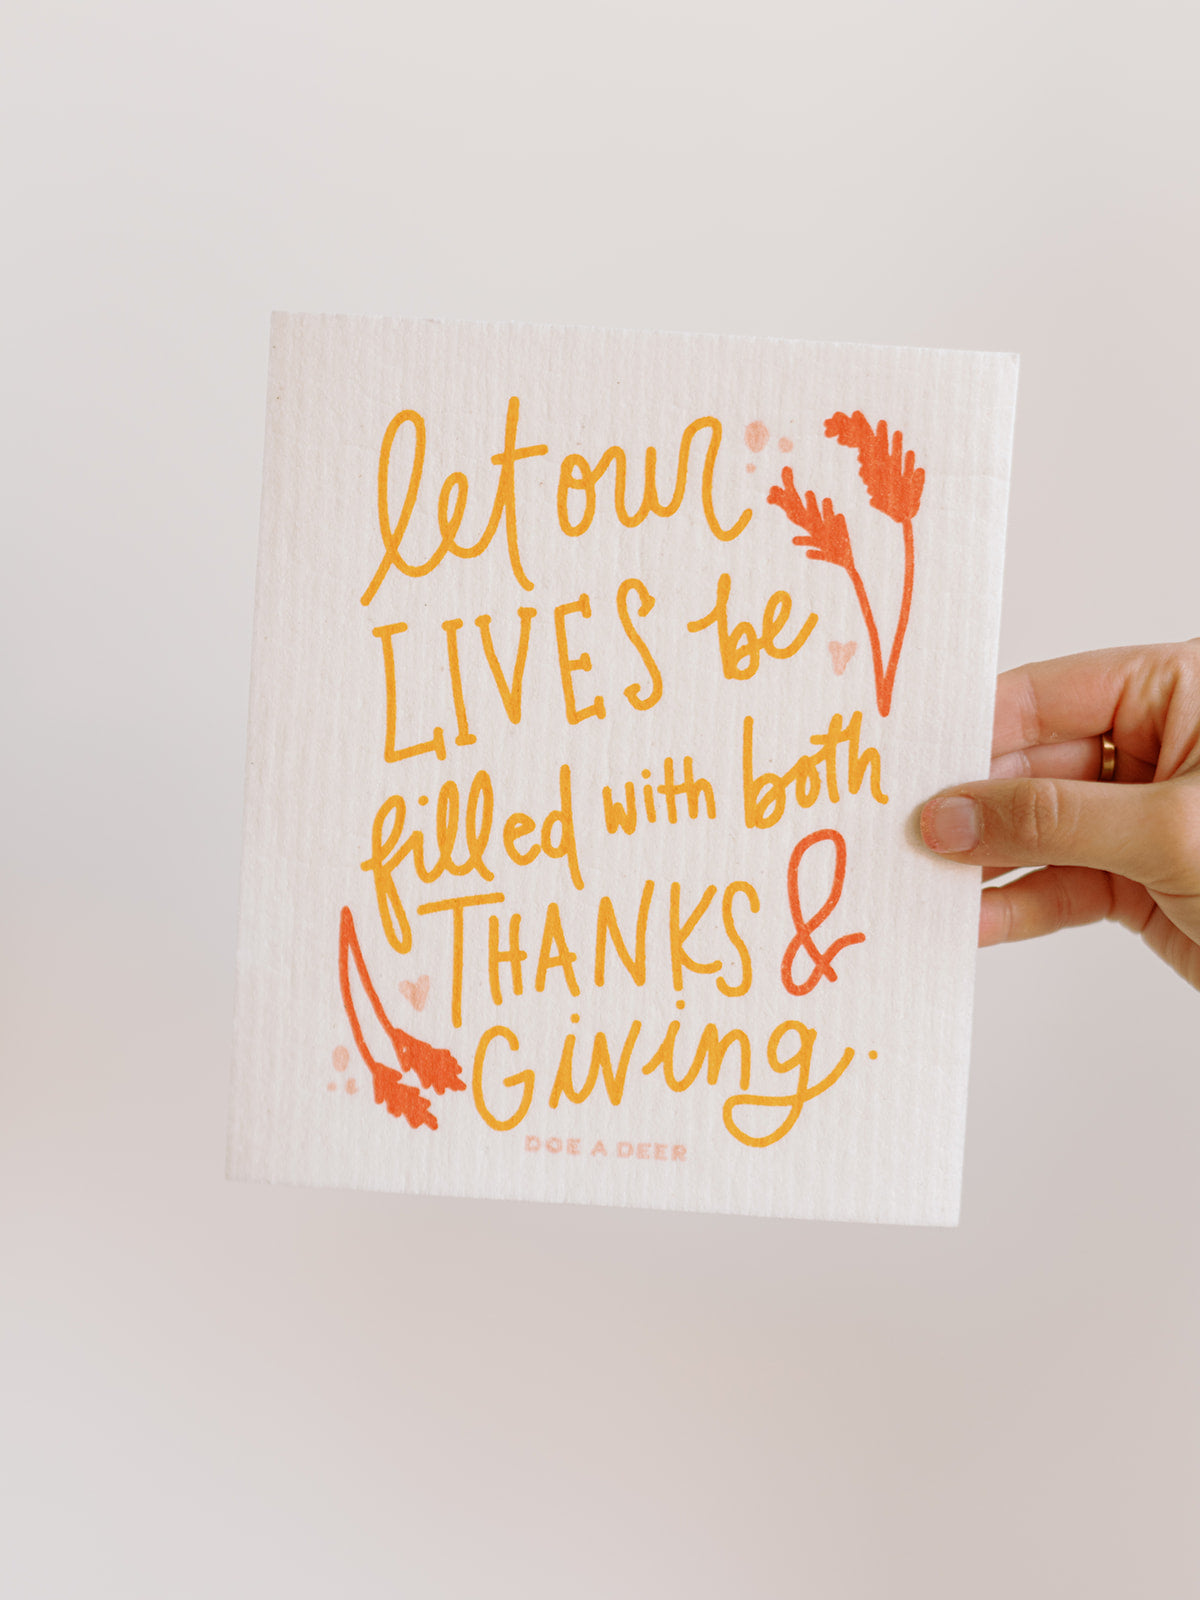 let our
LIVES be
filled with both
THANKS &
Giving.
DOE A DEER